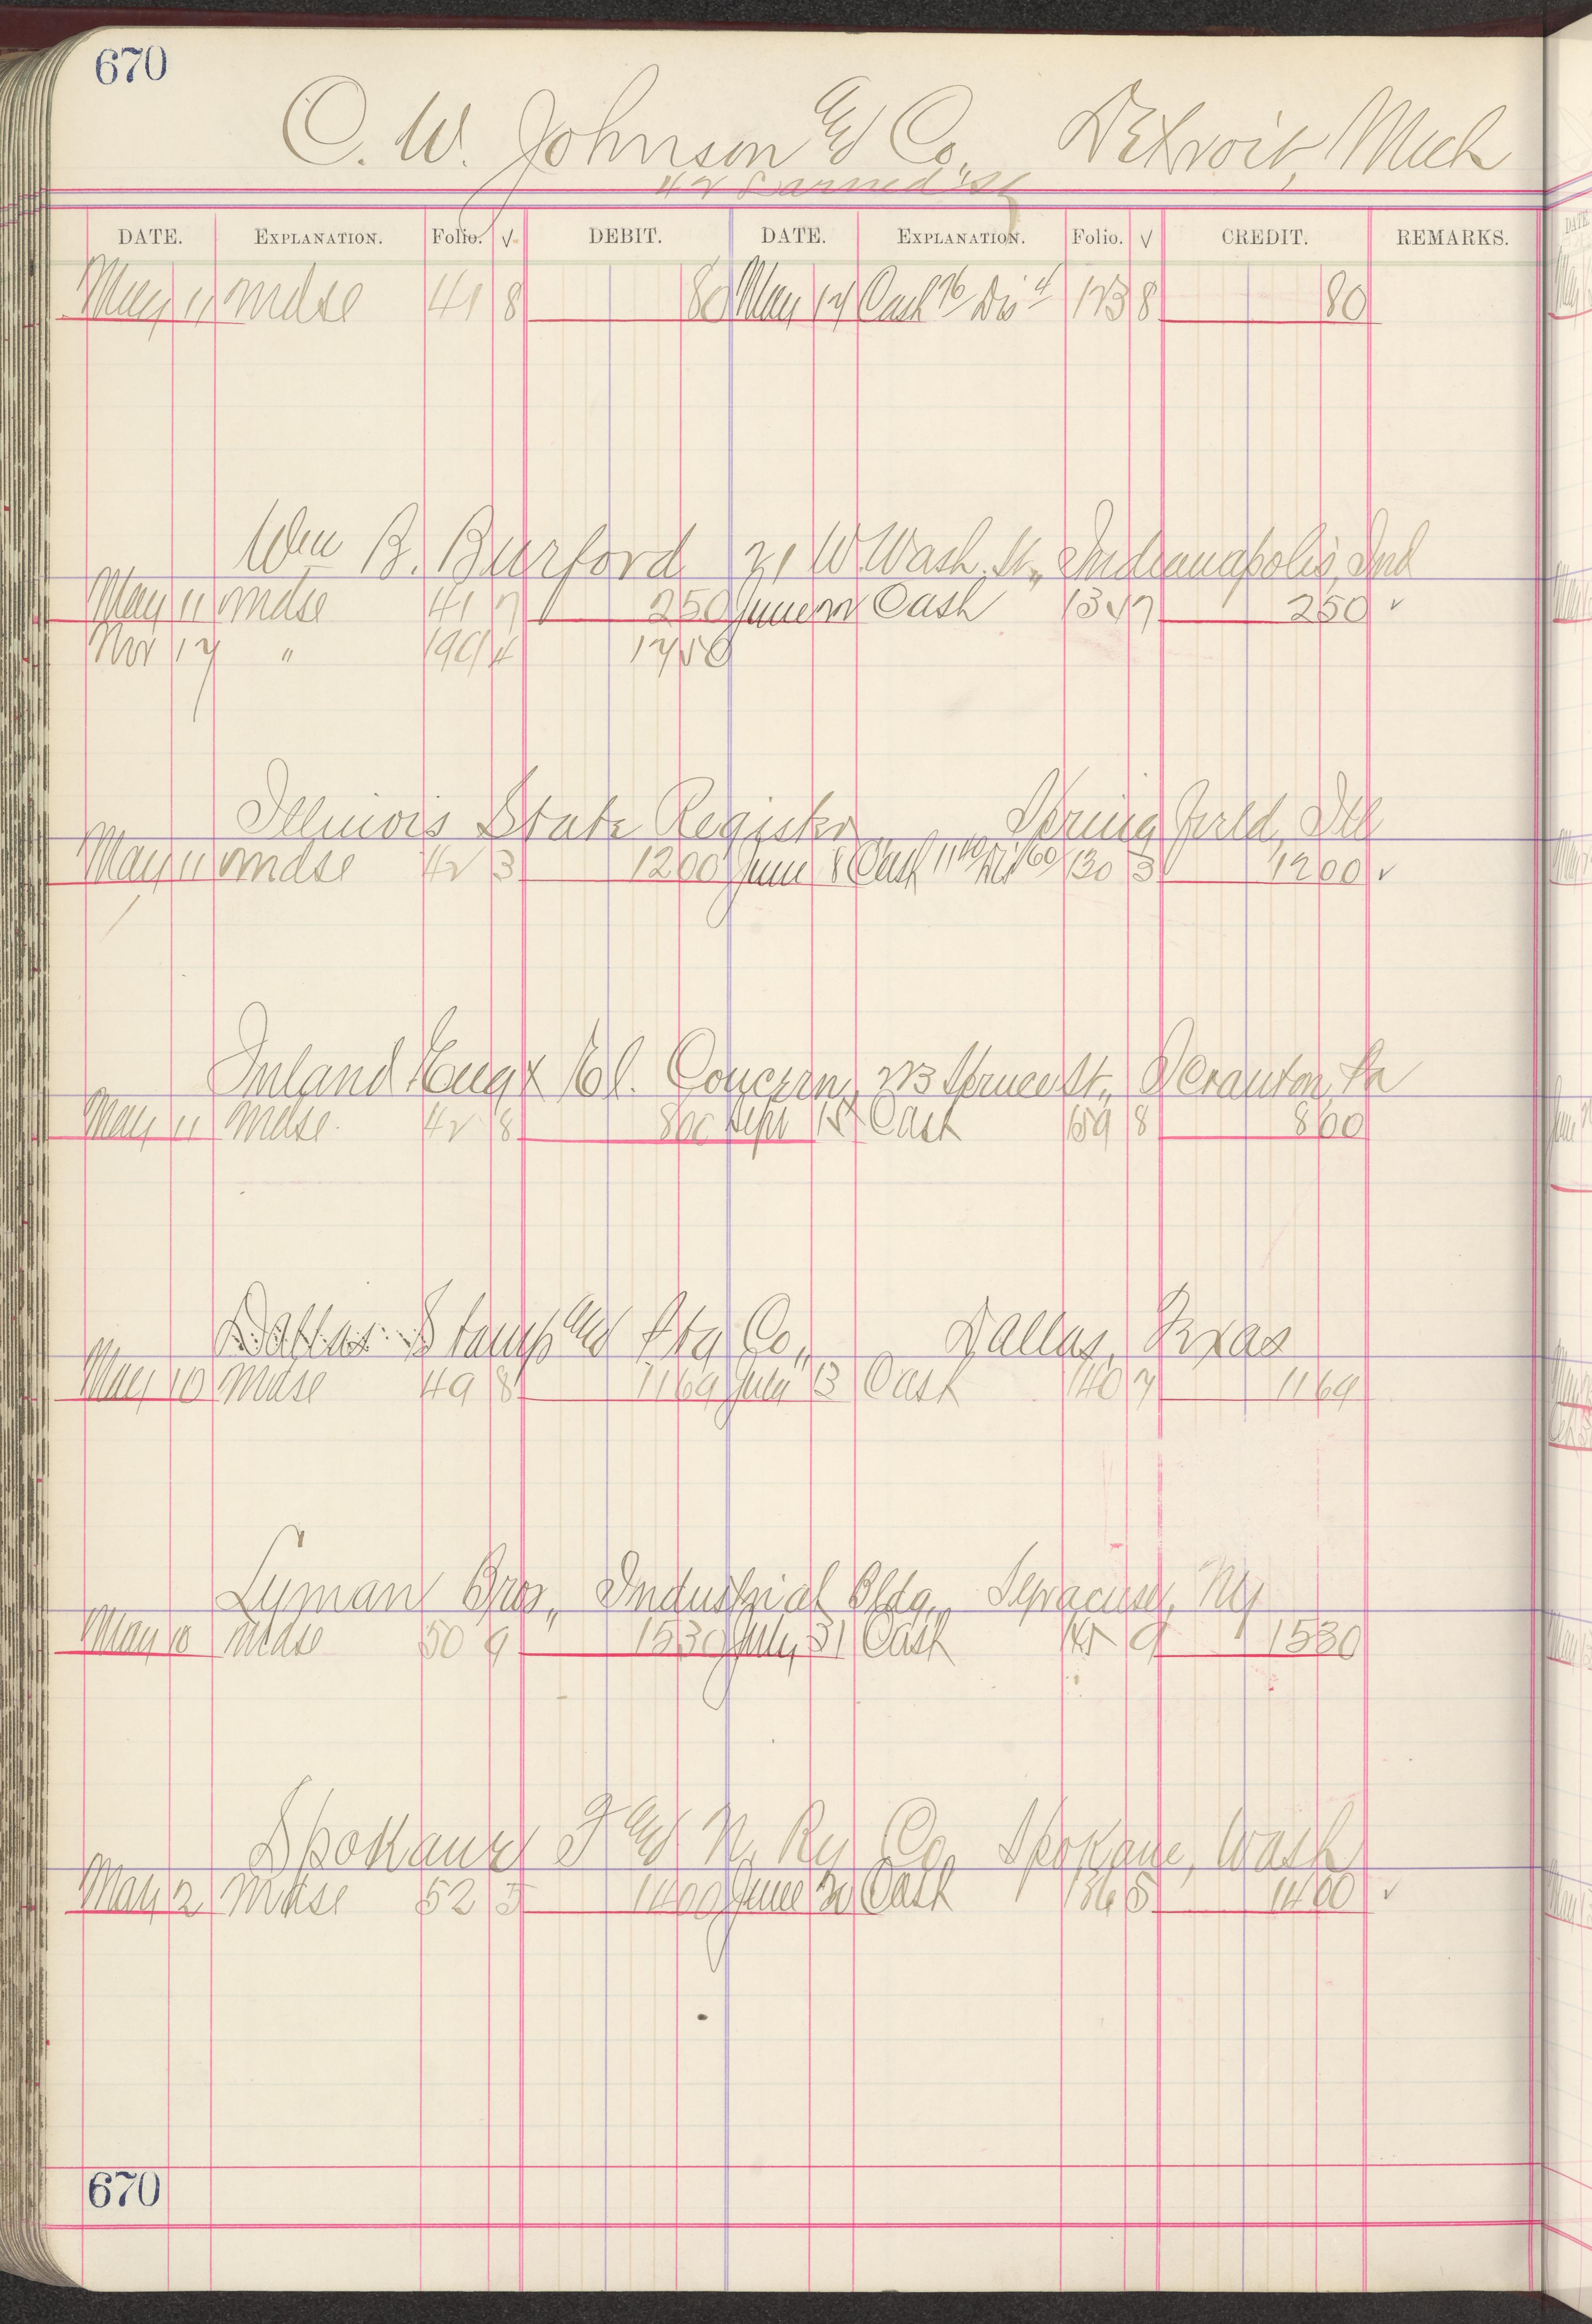 670
C. W. Johnson & Co. Detroit, Mich
42
DATE. EXPLANATION. Folio. √. DEBIT. DATE. EXPLANATION. Folio. √ CREDIT. REMARKS.
May 11 Mdse 41 8 80 May 17 Cash 76 Dis 4 123 8 80
Wm B. Burford 21 W Wash. St., Indianapolis, Ind
May 11 Mdse 41 7 250 June Cash 7 250 √
Nov 17 " 4
Illinois State Register Springfield, Ill
May 11 Mdse 42 3 1200 June 8 Cash 1140 Dis 60 130 3 1200 √
Inland Eng & El. Concern, 223 Spruce St., Scranton, Pa
May 11 Mdse. 42 8 800 Sept 15 Cash 159 8 800
Dallas Stamp & Sta Co., Dallas, Texas
May 10 Mdse 49 8 1169 July 13 Cash 140 7 1169
Lyman Bros., Industrial Bldg., Syracuse, NY
May 10 Mdse 50 9 1530 July 31 Cash 9 1530
Spokane F & N. Ry Co. Spokane, Wash
May 2 Mdse 52 5 1400 June Cash 136 5 1400 √
670